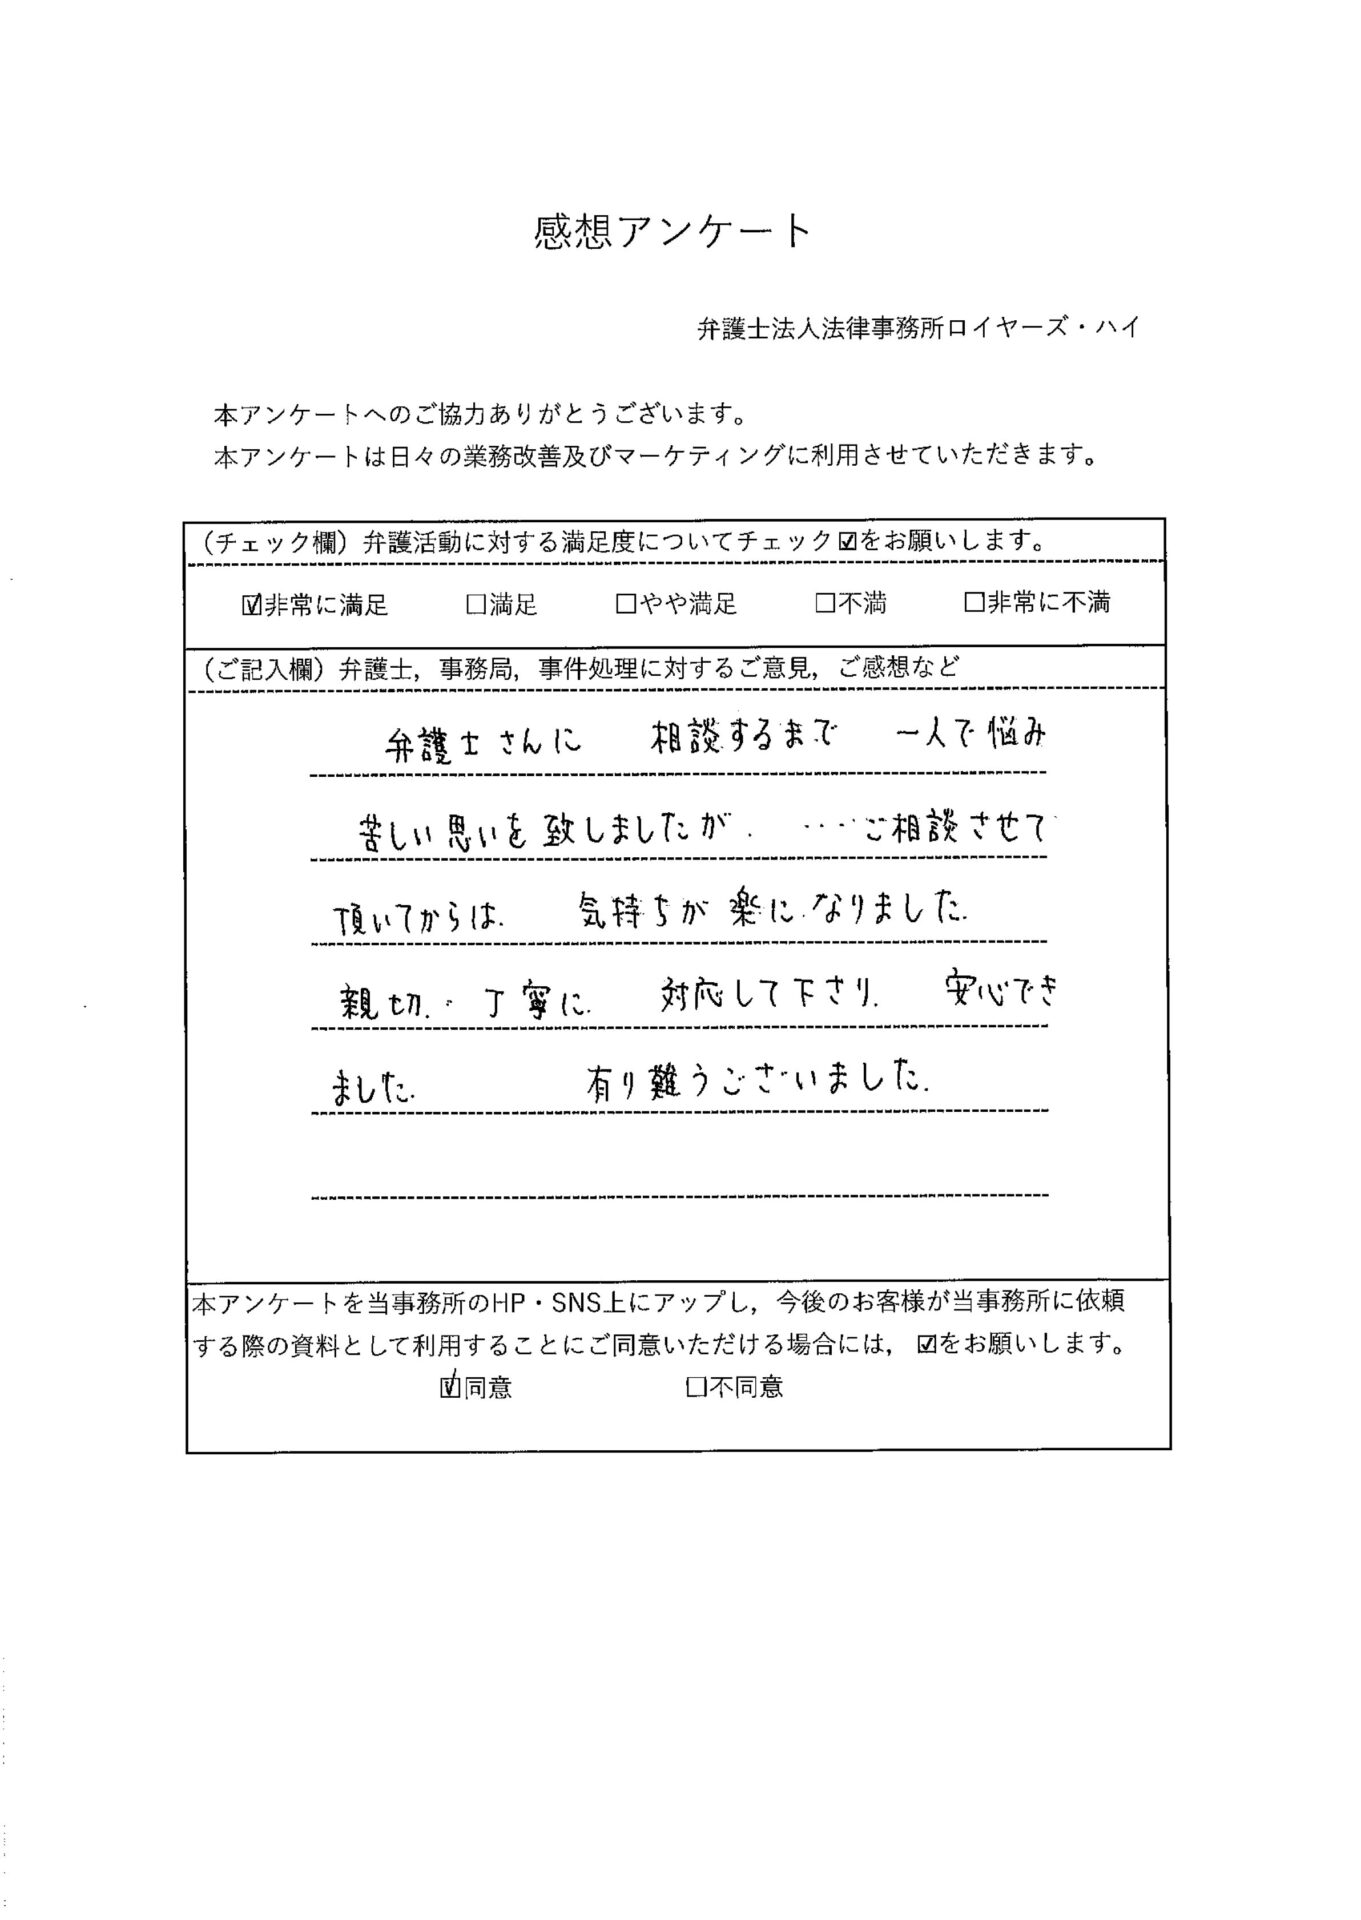 感想アンケート
弁護士法人法律事務所ロイヤーズ・ハイ
本アンケートへのご協力ありがとうございます。
本アンケートは日々の業務改善及びマーケティングに利用させていただきます。
（チェック欄）弁護活動に対する満足度についてチェック☑をお願いします。
☑非常に満足 □満足 □やや満足 □不満 □非常に不満
（ご記入欄）弁護士，事務局，事件処理に対するご意見，ご感想など
弁護士さんに 相談するまで 一人で悩み
苦しい思いを致しましたが. ‥‥ご相談させて
頂いてからは. 気持ちが楽になりました.
親切.・丁寧に. 対応して下さり. 安心でき
ました. 有り難うございました.
本アンケートを当事務所のHP・SNS上にアップし，今後のお客様が当事務所に依頼
する際の資料として利用することにご同意いただける場合には，☑をお願いします。
☑同意 □不同意